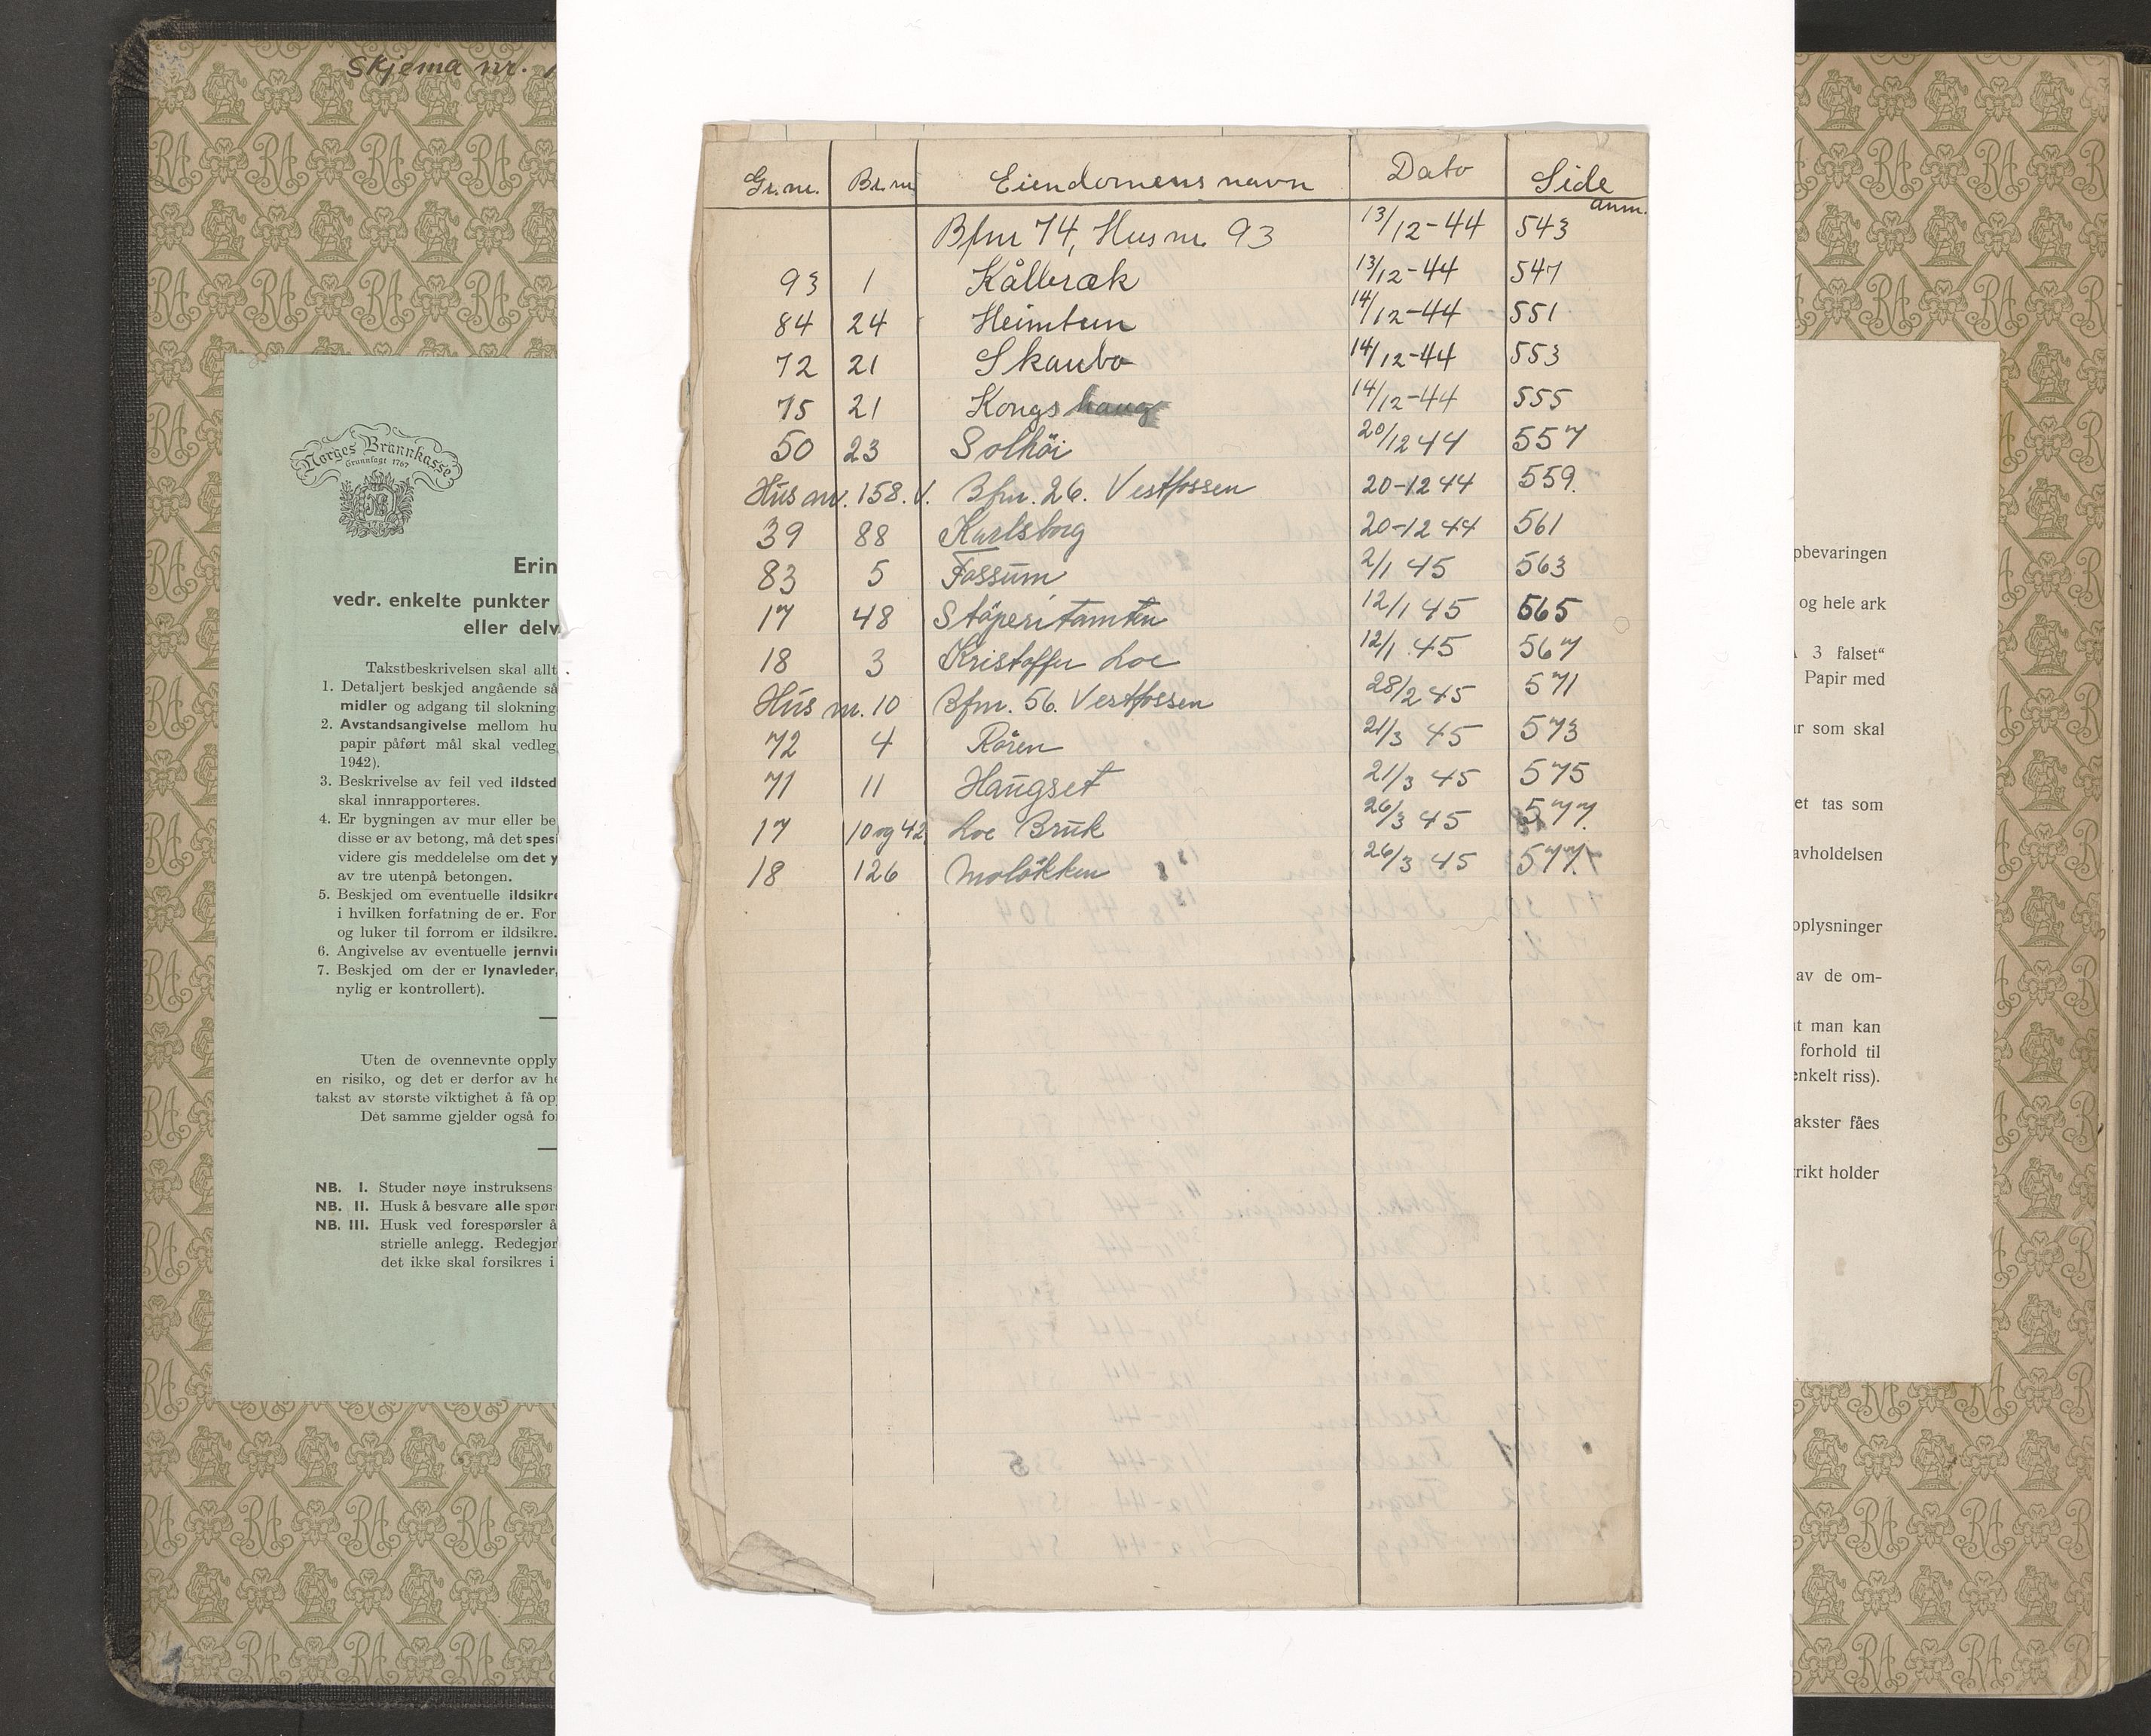 Skjema nr.
Norges Brannkasse
Grunnlagt 1767
NB
1767
Erin
vedr. enkelte punkter
eller delv
Takstbeskrivelsen skal allt
1. Detaljert beskjed angående så
midler og adgang til slokning
2. Avstandsangivelse mellom hu
papir påført mål skal vedleg
1942).
3. Beskrivelse av feil ved ildsted
skal innrapporteres.
4. Er bygningen av mur eller be
disse er av betong, må det spesi
videre gis meddelelse om det y
av tre utenpå betongen.
5. Beskjed om eventuelle ildsikre
i hvilken forfatning de er. For
og luker til forrom er ildsikre.
6. Angivelse av eventuelle jernvin
7. Beskjed om der er lynavleder,
nylig er kontrollert).
Uten de ovennevnte opply
en risiko, og det er derfor av he
takst av største viktighet å få op
Det samme gjelder også fo
NB. I. Studer nøye instruksens
NB. II. Husk å besvare alle spørs
NB. III. Husk ved forespørsler å
strielle anlegg. Redegjør
det ikke skal forsikres i
Gr.nr. Br.nr Eiendomens navn Dato Side
anm.
Bfnr 74, Husnr. 93 13/12-44 543
93 1 Kålbræk 13/12-44 547
84 24 Heimtun 14/12-44 551
72 21 Skaubo 14/12-44 553
75 21 Kongshaug 14/12-44 555
50 23 Solhöi 20/12 44 557
Hus nr. 158. V. Bfnr. 26. Vestfossen 20-12 44 559.
39 88 Karlsborg 20-12 44 561
83 5 Fossum 2/1 45 563
17 48 Stöperitomten 12/1 45 565
18 3 Kristoffer Loe 12/1 45 567
Hus nr. 10 Bfnr. 56. Vestfossen 28/2 45 571
72 4 Røren 21/3 45 573
71 11 Haugset 21/3 45 575
17 10 og 42 Loe Bruk 26/3 45 577.
18 126 Moløkken 26/3 45 577.
pbevaringen
og hele ark
A 3 falset“
Papir med
ur som skal
et tas som
avholdelsen
oplysninger
av de om-
at man kan
forhold til
enkelt riss).
akster fåes
rikt holder